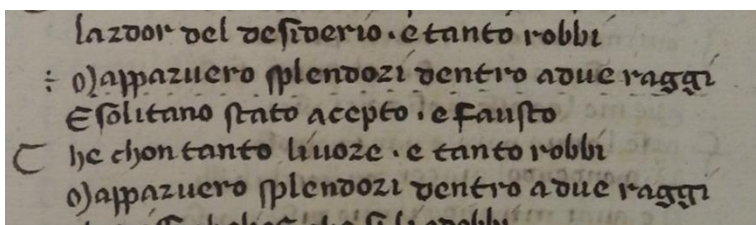 lardor del desiderio · e tanto robbi
M apparuero splendori dentro adue raggi
E solitano stato acepto · e fausto
C he chon tanto liuore · e tanto robbi
M apparuero splendori dentro adue raggi